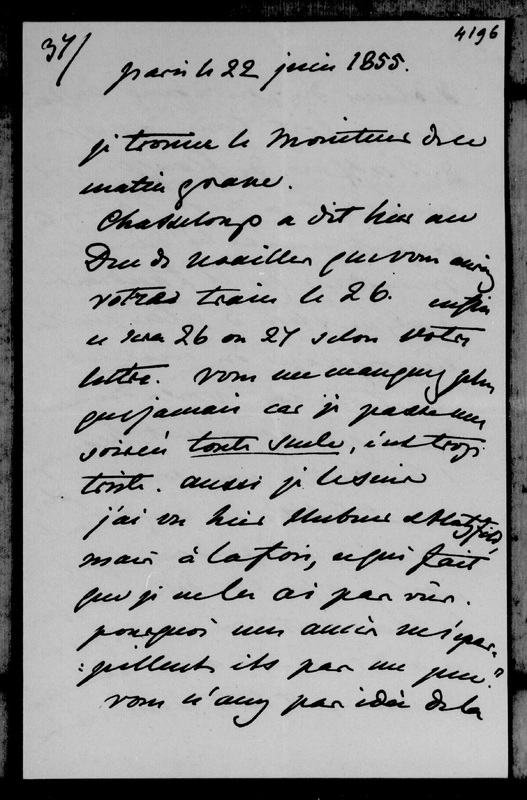 37/
4196
Paris le 22 juin 1855.
je trouve le Moniteur de ce
matin grave.
Chasseloup a dit hier au
Duc de Noailles que vous auriez
votre train le 26. enfin
ce sera 26 ou 27 selon votre
lettre. vous me manquez plus
que jamais car je passe mes
soirées toute seule, c'est trop
triste. aussi je
j'ai vu hier Hubner et Hatzfeldt,
mais à la fois, ce qui fait
que je ne les ai pas vus.
pourquoi mes amis ne s'épar-
:pillent ils pas un peu?
vous n'avez pas idée de la